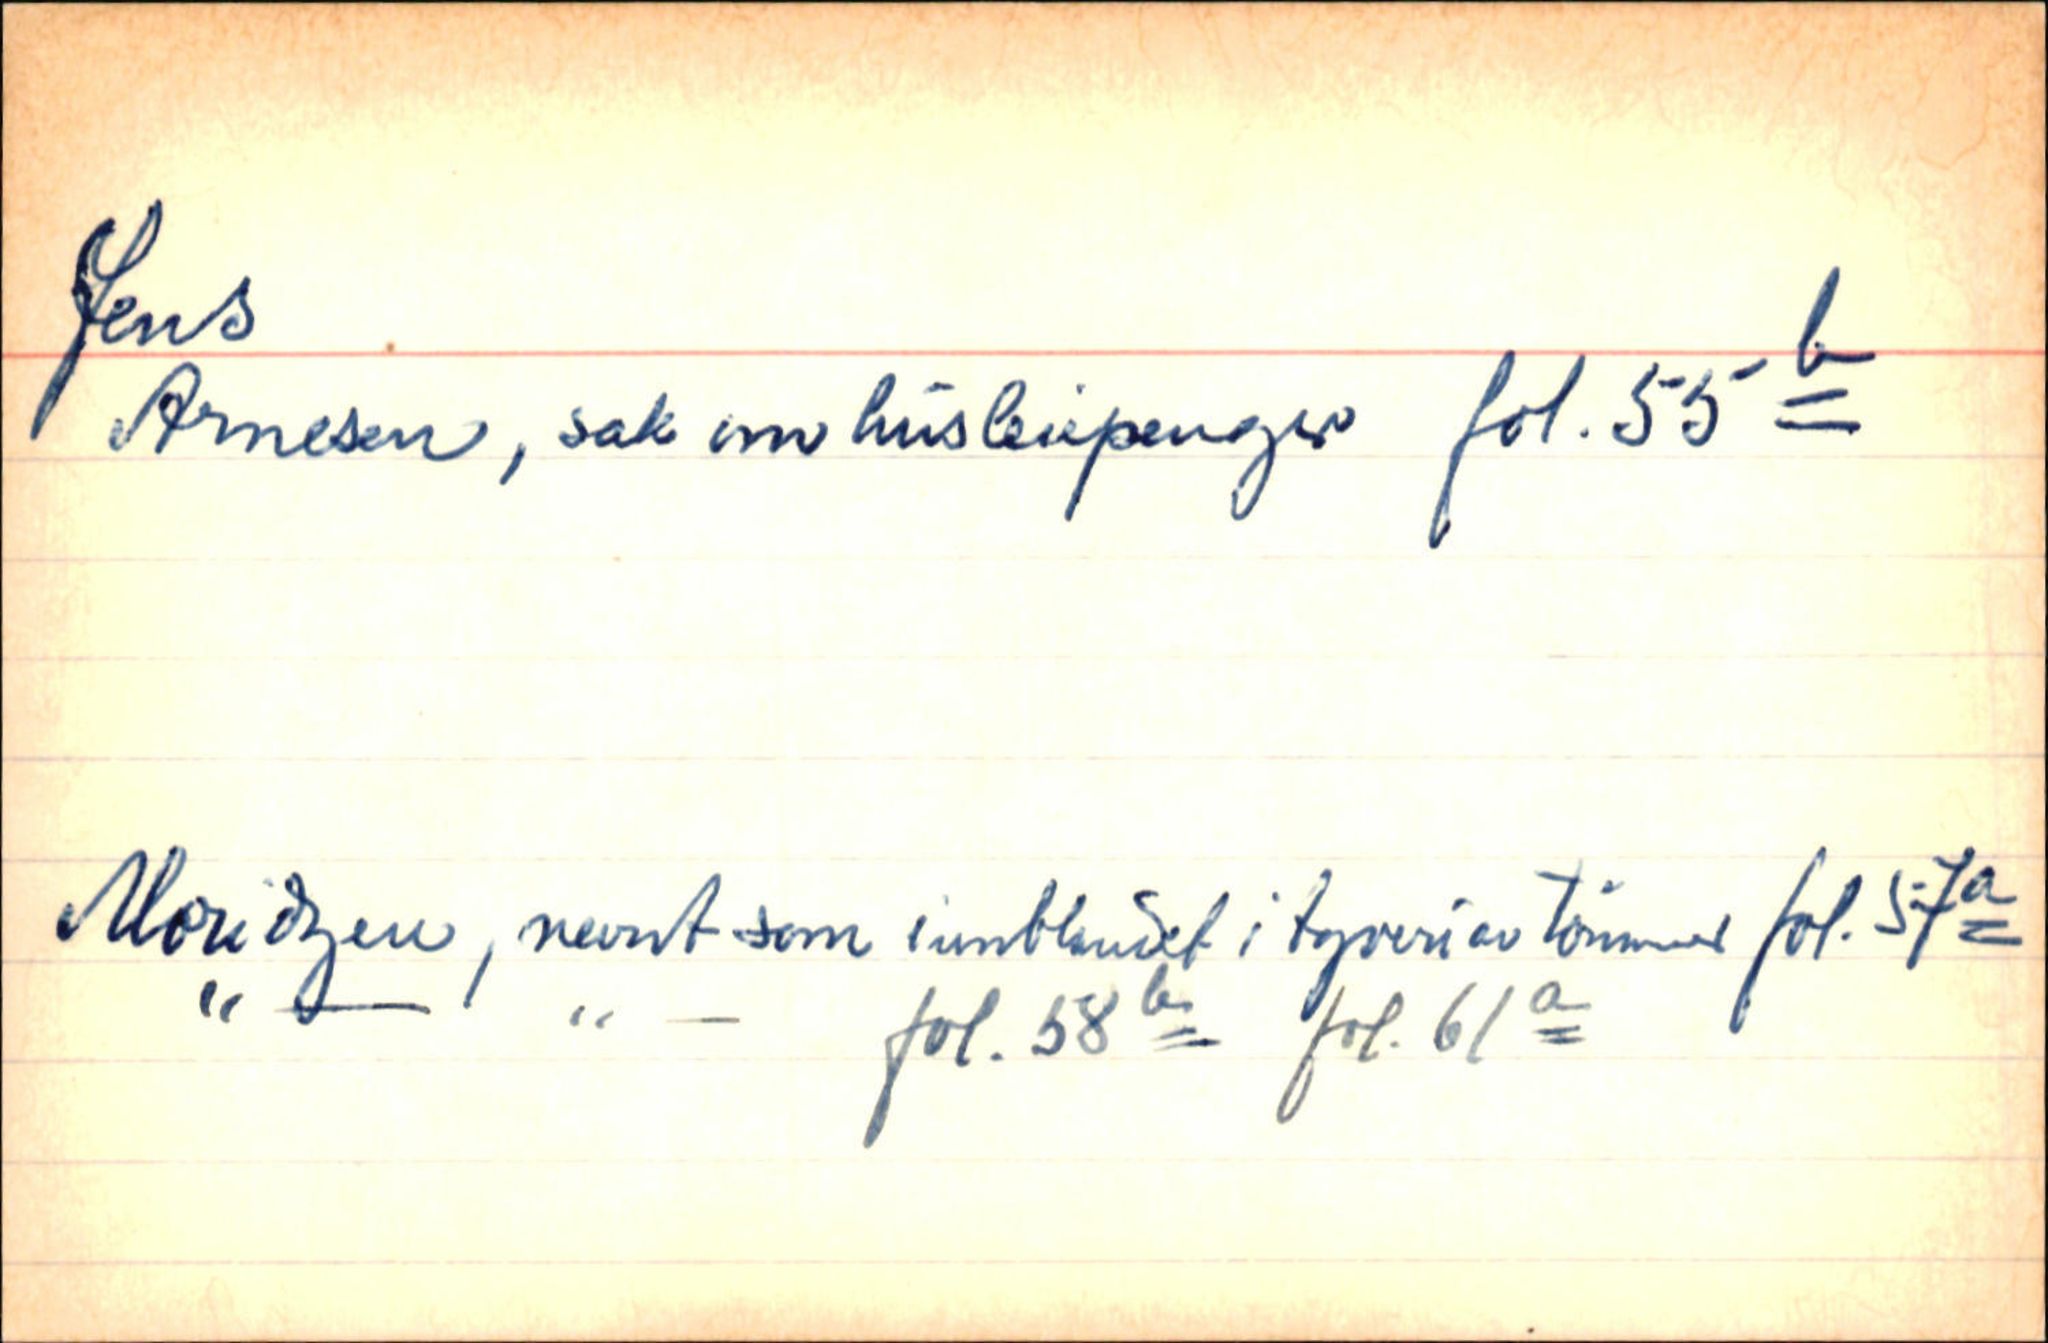 Jens
Arnesen, sak om husleiepenger fol. 55 b
Moridzen, nevnt som innblandet i tyveri av tømmer fol. 57a
" — " — fol. 58 b fol. 61 a